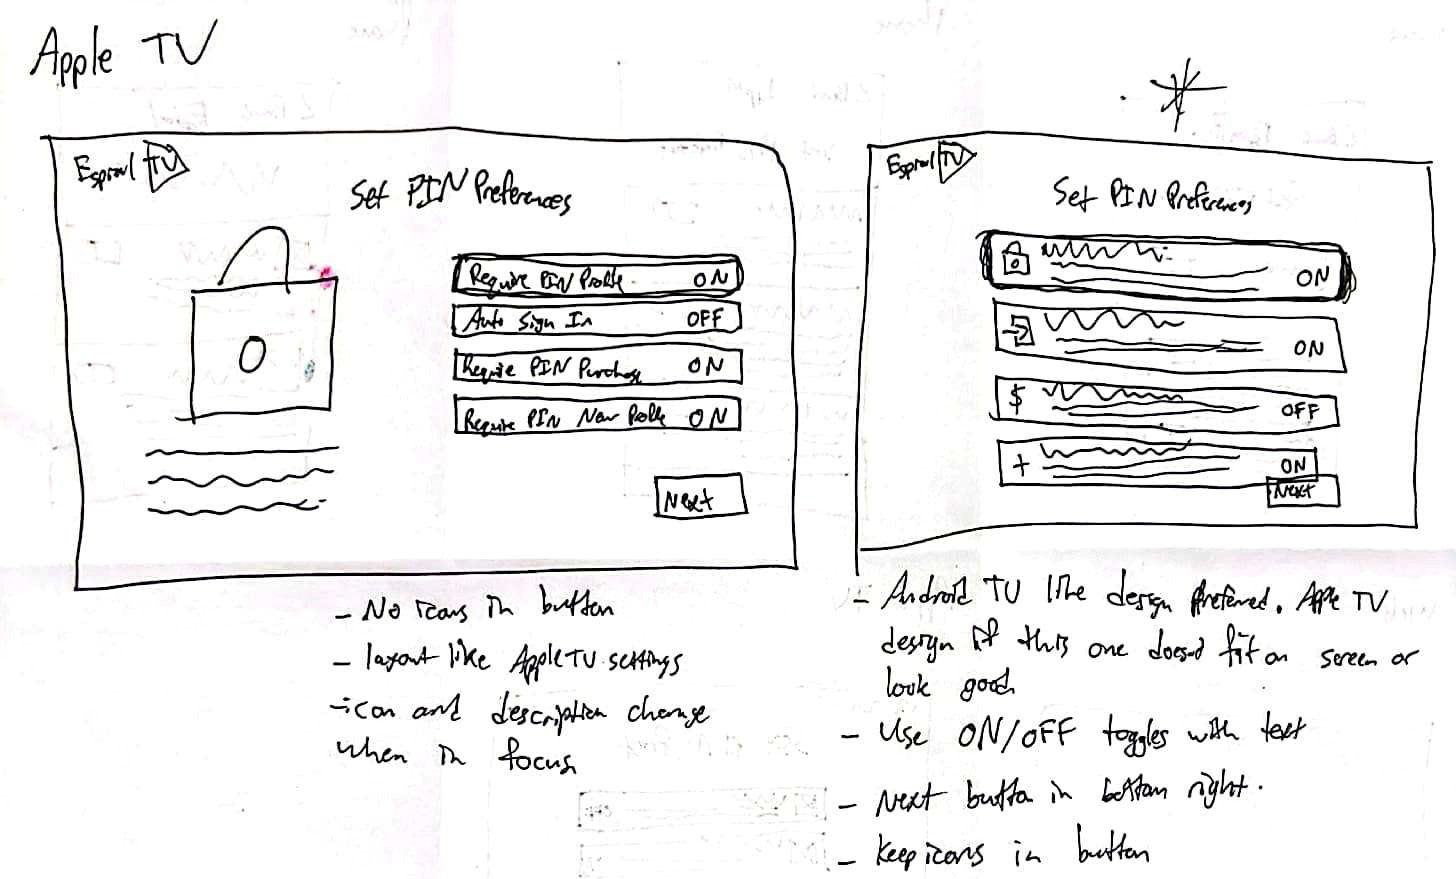 Apple TV
Esprowl TV
Set PIN Preferences
Require PIN Profile ON
Auto Sign In OFF
Require PIN Purchase ON
Require PIN New Profile ON
Next
- No icons in button
- layout like Apple TV settings
- icon and description change
when in focus
Esprowl TV
Set PIN Preferences
ON
ON
$ OFF
+ ON
Next
- Android TV like design preferred. Apple TV
design if this one doesnt fit on screen or
look good
- Use ON/OFF toggles with text
- Next button in bottom right.
- Keep icons in button